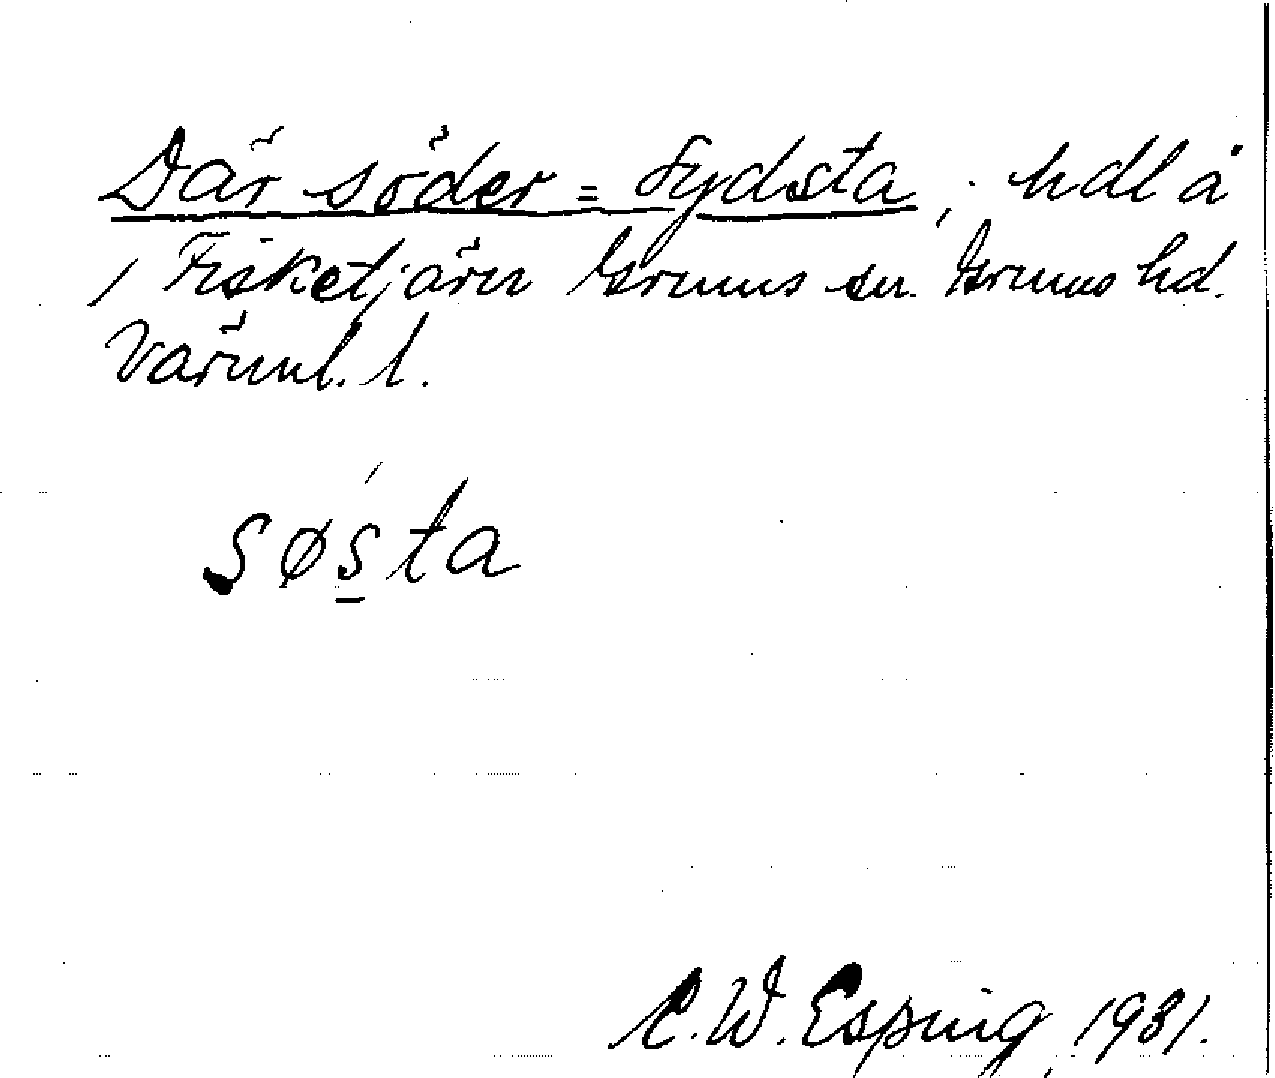 Där söder = Sydsta, hdl å
i Fisketjärn Grums sn. Grums hd.
Värml. l.
søs̲ta
C. W. Esping 1931.